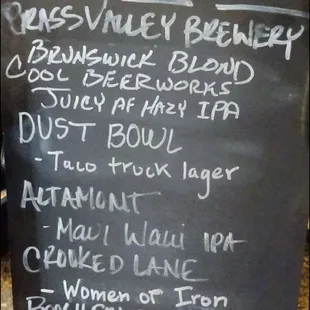 GRASS VALLEY BREWERY
BRUNSWICK BLOND
COOL BEERWORKS
JUICY AF HAZY IPA
DUST BOWL
- Taco truck lager
ALTAMONT
- Maui Waui IPA
CROOKED LANE
- Women of Iron